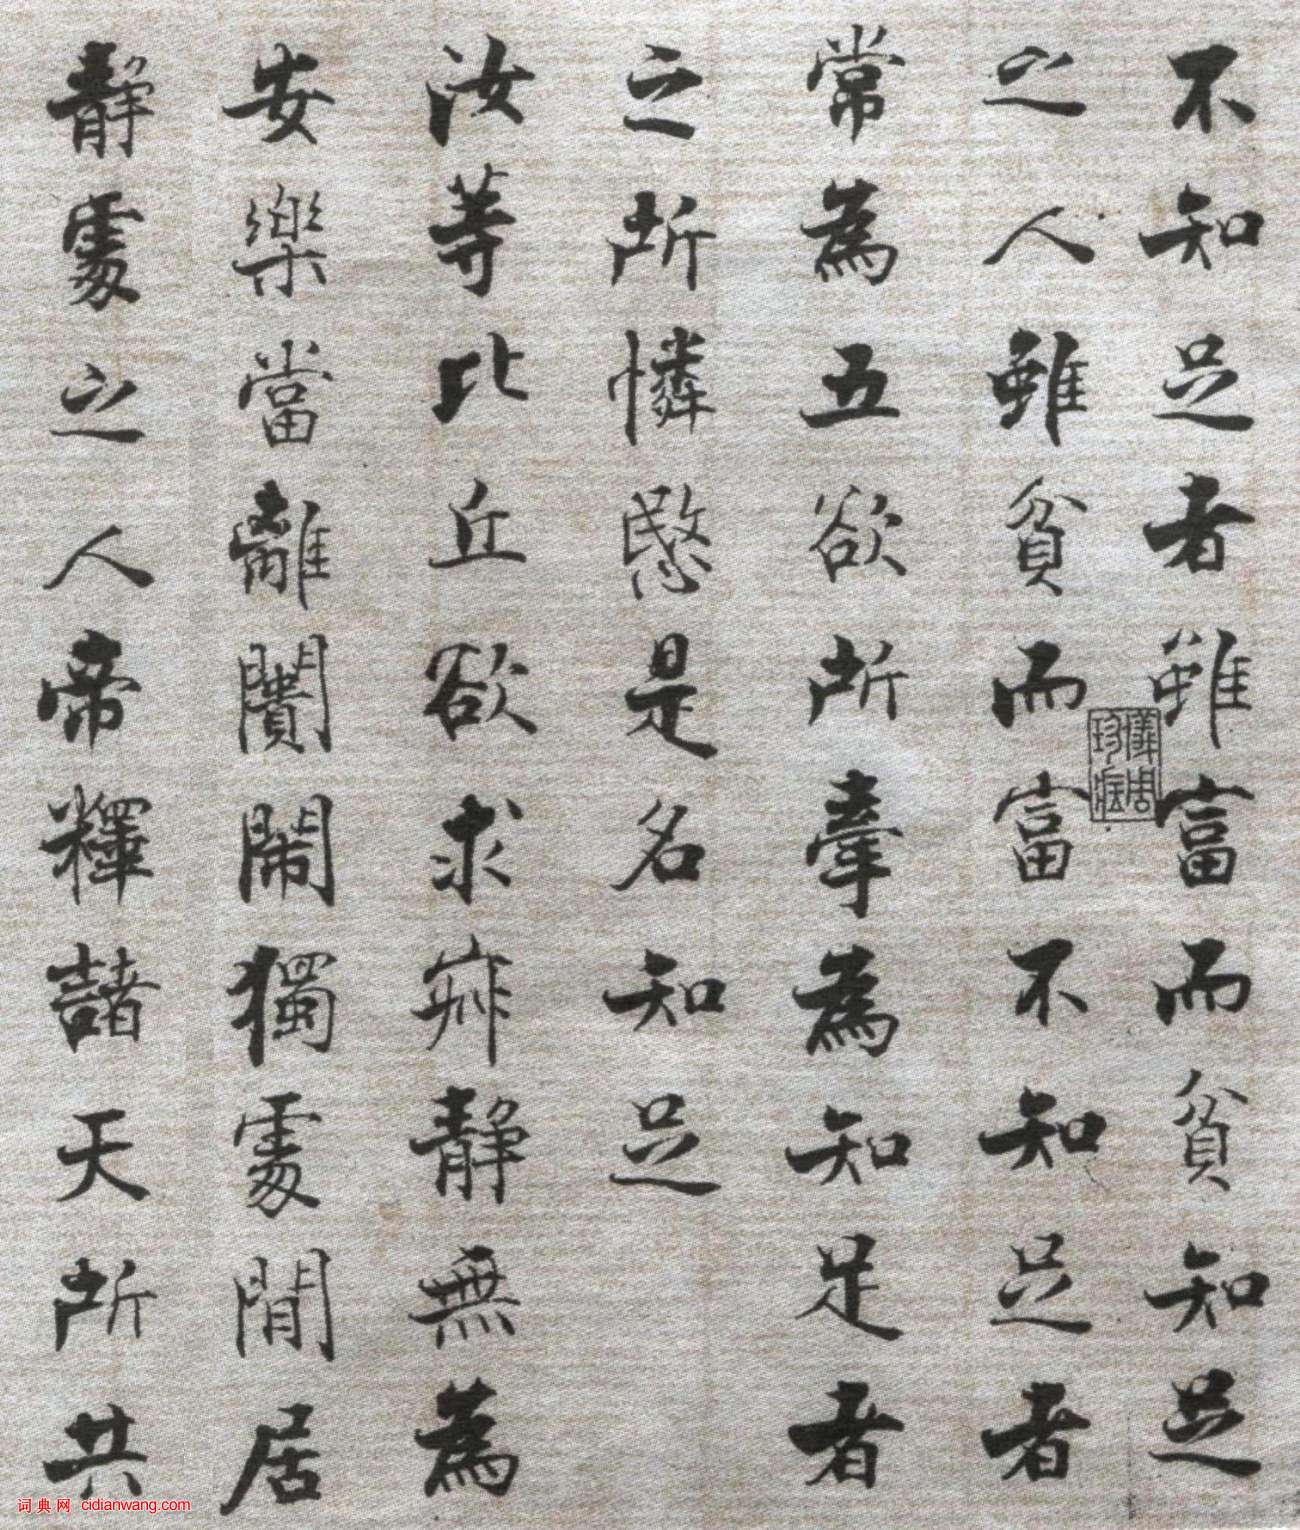 不知足者雖富而貧知足
之人雖貧而富不知足者
常為五欲所牽為知足者
之所憐愍是名知足
汝等比丘欲求寂靜無為
安樂當離闠閙獨處閒居
靜處之人帝釋諸天所共
词典网 cidianwang.com